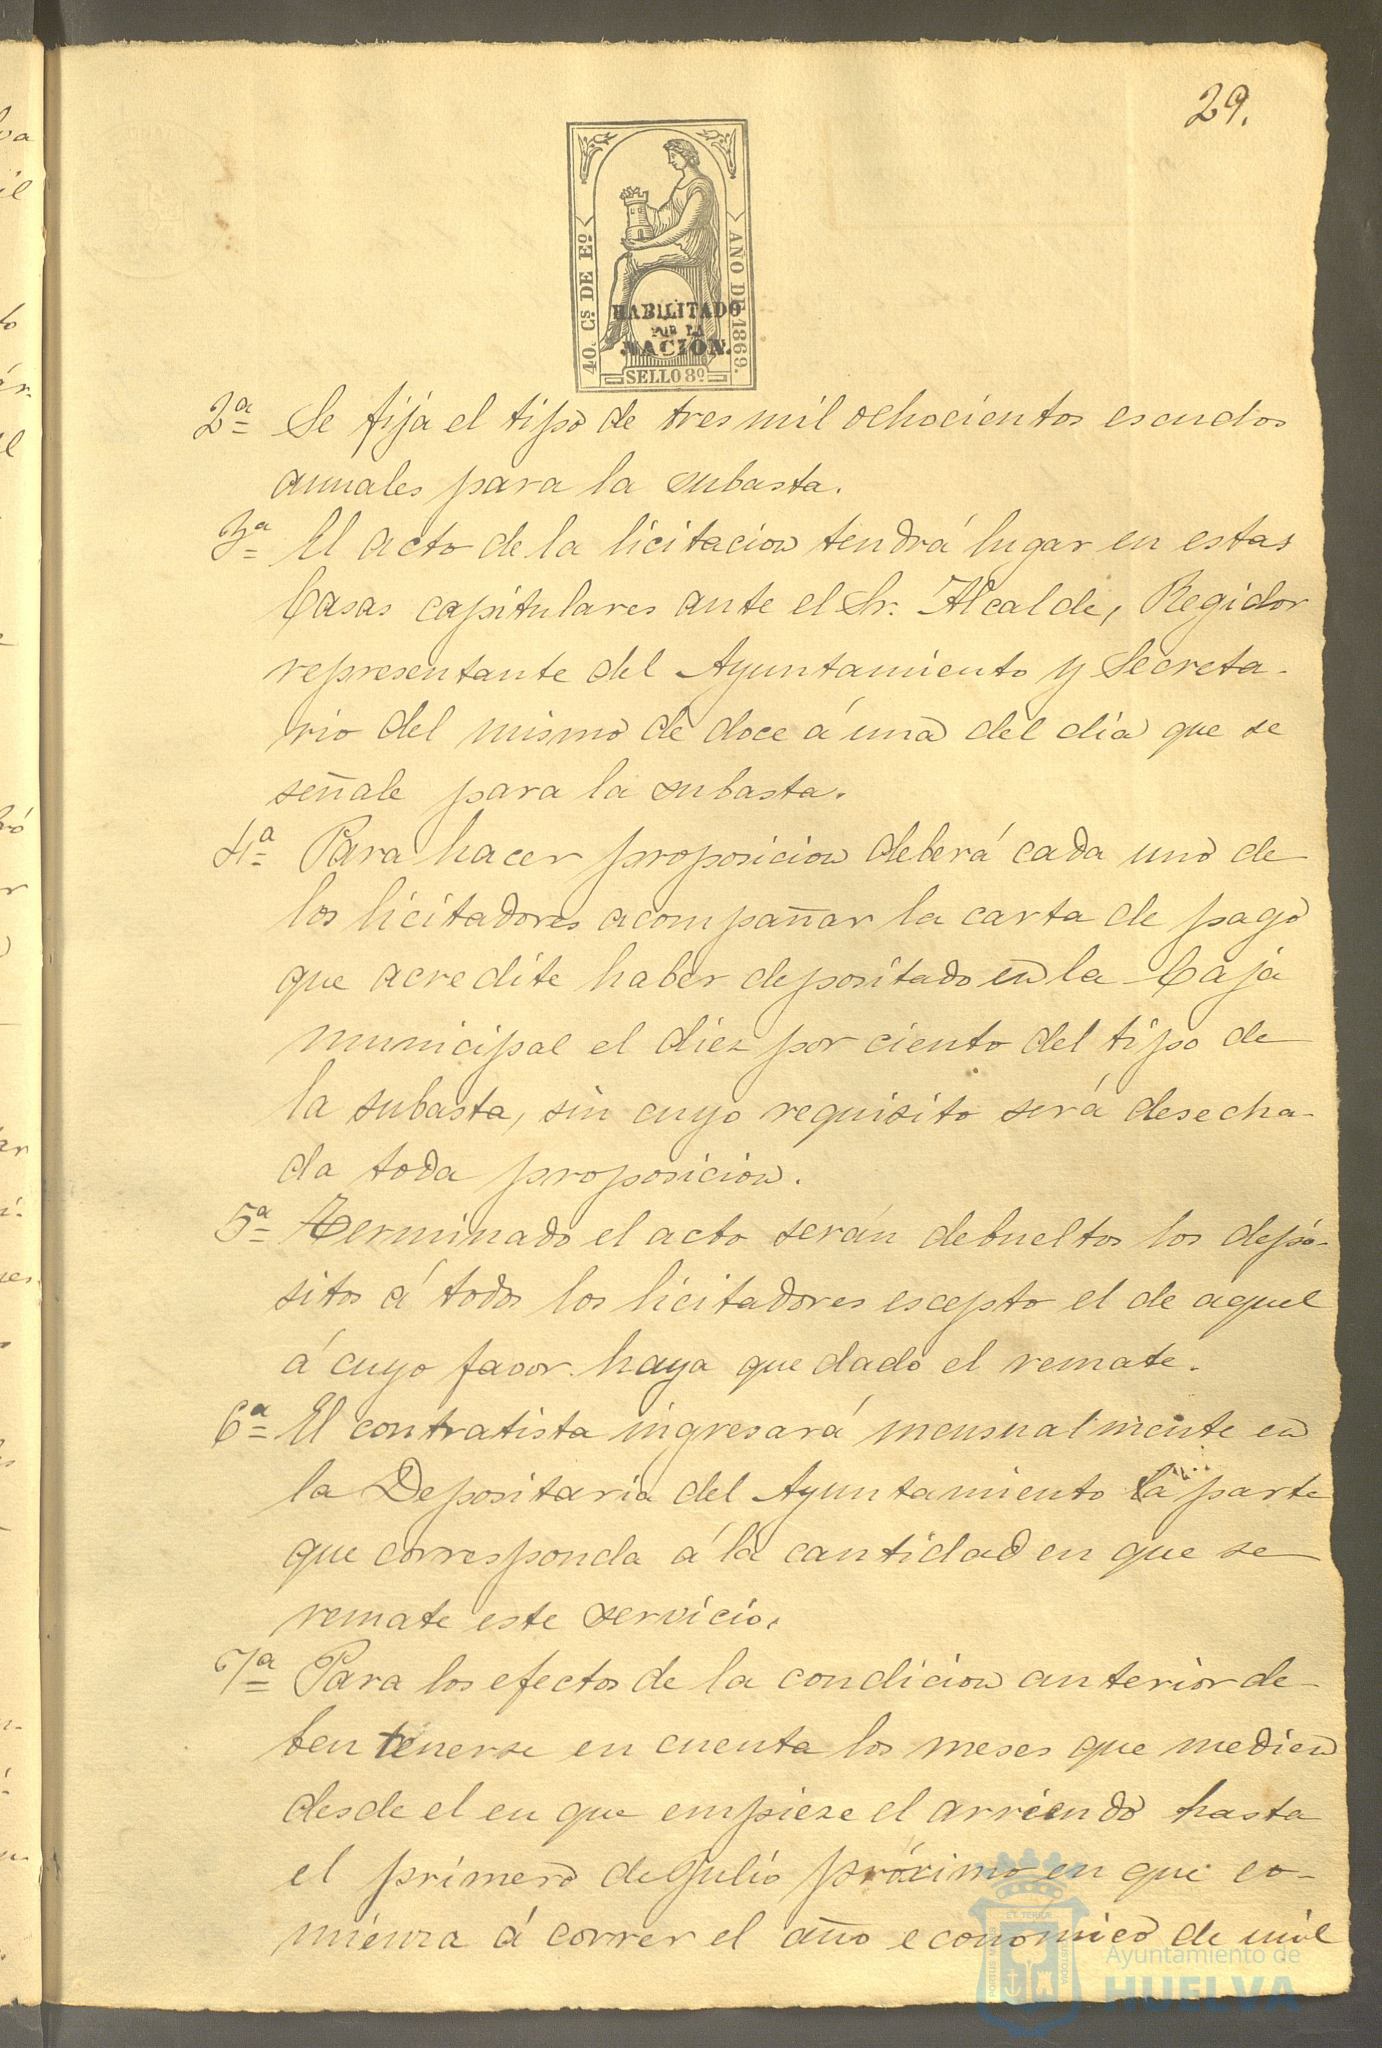 29.
40. Cs. DE Eº
AÑO DE 1869.
HABILITADO
POR LA
NACION.
SELLO 8º
2ª Se fija el tipo de tres mil ochocientos escudos
anuales para la subasta.
3ª El acto de la licitacion tendrá lugar en estas
Casas capitulares ante el Sr. Alcalde, Regidor
representante del Ayuntamiento y Secreta-
rio del mismo de doce á una del dia que se
señale para la subasta.
4ª Para hacer proposicion deberá cada uno de
los licitadores acompañar la carta de pago
que acredite haber depositado en la Caja
municipal el diez por ciento del tipo de
la subasta, sin cuyo requisito será desecha-
da toda proposicion.
5ª Terminado el acto serán debueltos los depó-
sitos á todos los licitadores escepto el de aquel
á cuyo favor haya quedado el remate.
6ª El contratista ingresará mensualmente en
la Depositaria del Ayuntamiento la parte
que corresponda á la cantidad en que se
remate este servicio.
7ª Para los efectos de la condicion anterior de-
ben tenerse en cuenta los meses que medien
desde el en que empieze el arriendo hasta
el primero de Julio próximo en que co-
mienza á correr el año economico de mil
Ayuntamiento de
HUELVA